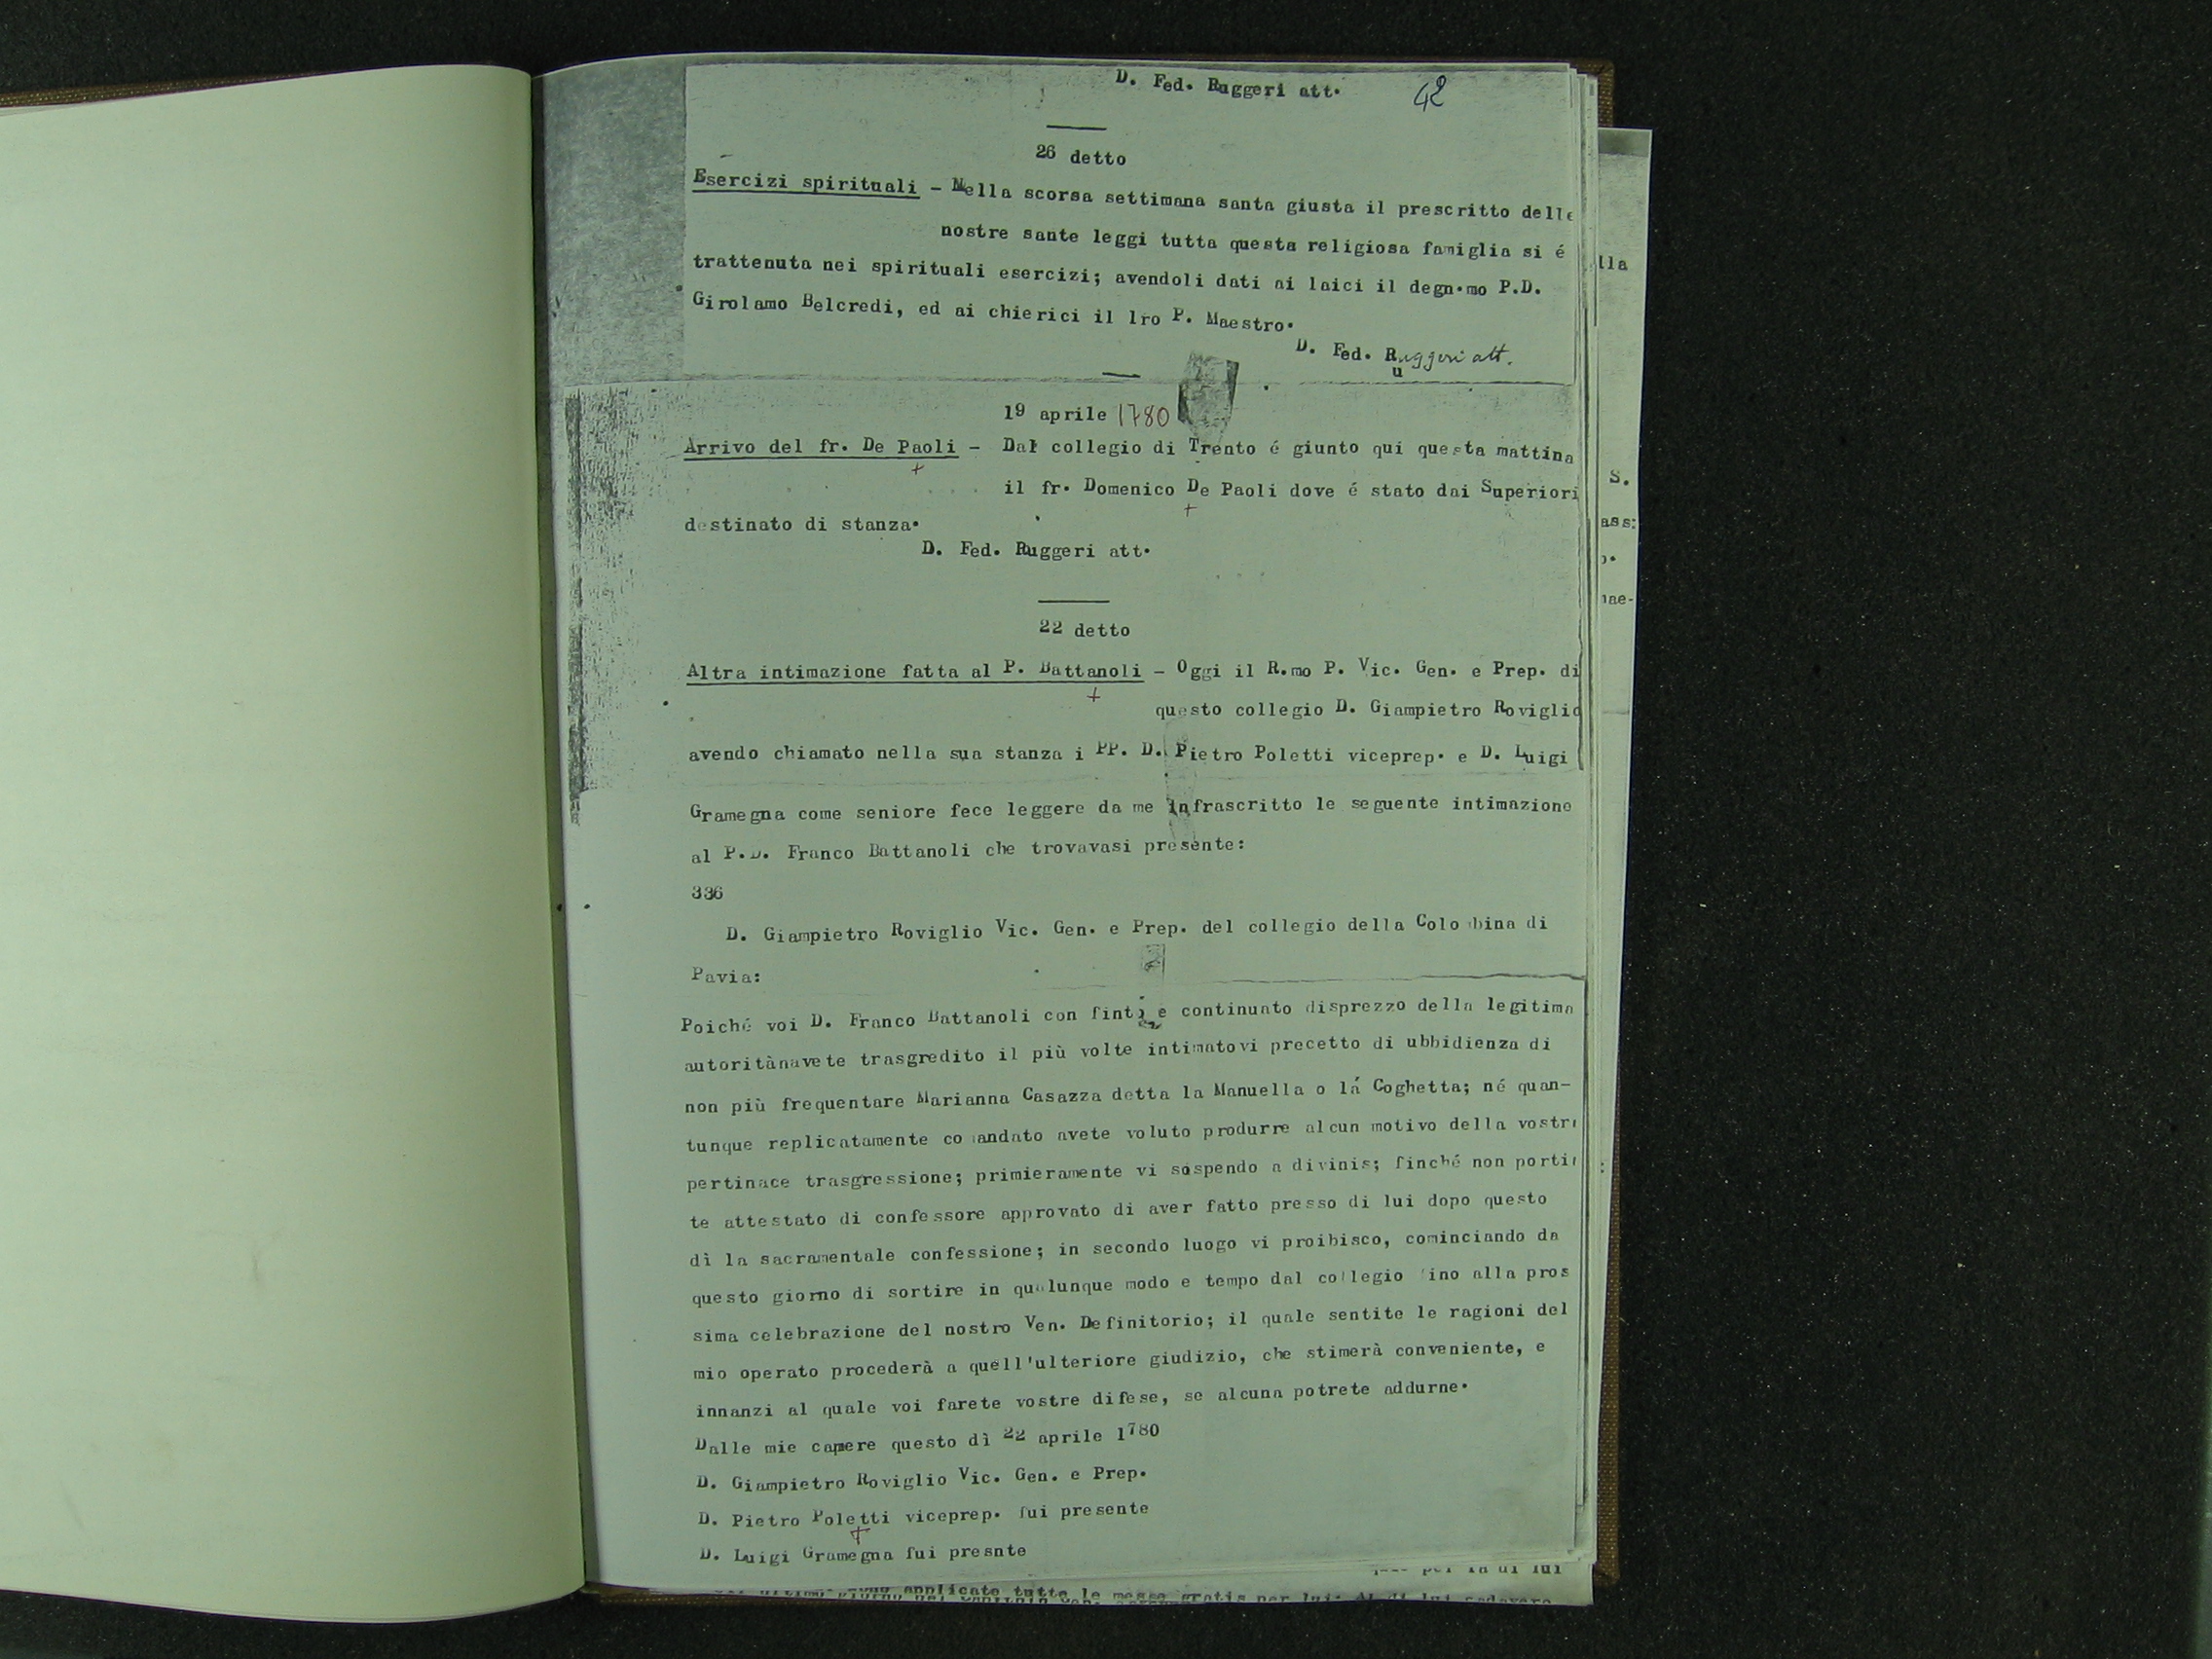 D. Fed. Ruggeri att.
42
26 detto
Esercizi spirituali - Nella scorsa settimana santa giusta il prescritto delle
nostre sante leggi tutta questa religiosa famiglia si é
trattenuta nei spirituali esercizi; avendoli dati ai laici il degn.mo P.D.
Girolamo Belcredi, ed ai chierici il lro P. Maestro.
D. Fed. Ruggeri att.
u
19 aprile 1780
Arrivo del fr. De Paoli - Dal collegio di Trento é giunto qui questa mattina
+
il fr. Domenico De Paoli dove é stato dai Superiori
+
destinato di stanza.
D. Fed. Ruggeri att.
22 detto
Altra intimazione fatta al P. Battanoli - Oggi il R.mo P. Vic. Gen. e Prep. di
+
questo collegio D. Giampietro Roviglio
avendo chiamato nella sua stanza i PP. D. Pietro Poletti viceprep. e D. Luigi
Gramegna come seniore fece leggere da me infrascritto le seguente intimazione
al P.D. Franco Battanoli che trovavasi presente:
336
D. Giampietro Roviglio Vic. Gen. e Prep. del collegio della Colombina di
Pavia:
Poiché voi D. Franco Battanoli con finti e continuato disprezzo della legitima
autoritànavete trasgredito il più volte intimatovi precetto di ubbidienza di
non più frequentare Marianna Casazza detta la Manuella o lá Coghetta; né quan-
tunque replicatamente comandato avete voluto produrre alcun motivo della vostra
pertinace trasgressione; primieramente vi sospendo a divinis; finché non porti
te attestato di confessore approvato di aver fatto presso di lui dopo questo
dì la sacramentale confessione; in secondo luogo vi proibisco, cominciando da
questo giorno di sortire in qualunque modo e tempo dal collegio fino alla pros
sima celebrazione del nostro Ven. Definitorio; il quale sentite le ragioni del
mio operato procederà a quell'ulteriore giudizio, che stimerà conveniente, e
innanzi al quale voi farete vostre difese, se alcuna potrete addurne.
Dalle mie camere questo dì 22 aprile 1780
D. Giampietro Roviglio Vic. Gen. e Prep.
D. Pietro Poletti viceprep. fui presente
+
D. Luigi Gramegna fui presnte
lla
S.
ass:
o.
mae-
:
per la di lui
applicate tutte le messe gratis per lui.